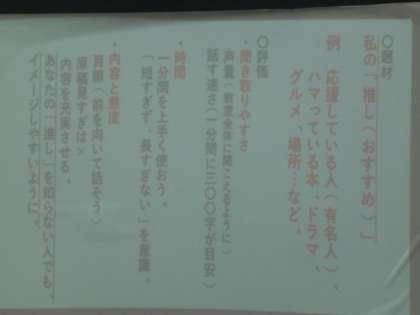 〇題材
私の「推し(おすすめ)」
例 応援している人(有名人)、
ハマっている本、ドラマ、
グルメ、場所…など。
〇評価
・聞き取りやすさ
声量(教室全体に聞こえるように)
話す速さ(一分間に三〇〇字が目安)
・時間
一分間を上手く使おう。
「短すぎず、長すぎない」を意識。
・内容と態度
目線(前を向いて話そう)
原稿見すぎは×
内容を充実させる。
あなたの「推し」を知らない人でも、
イメージしやすいように。